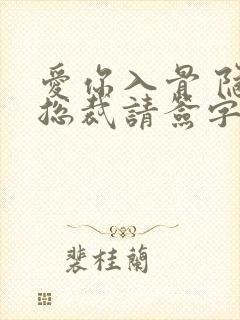 愛你入骨 隐
总裁請簽字
裴桂蘭